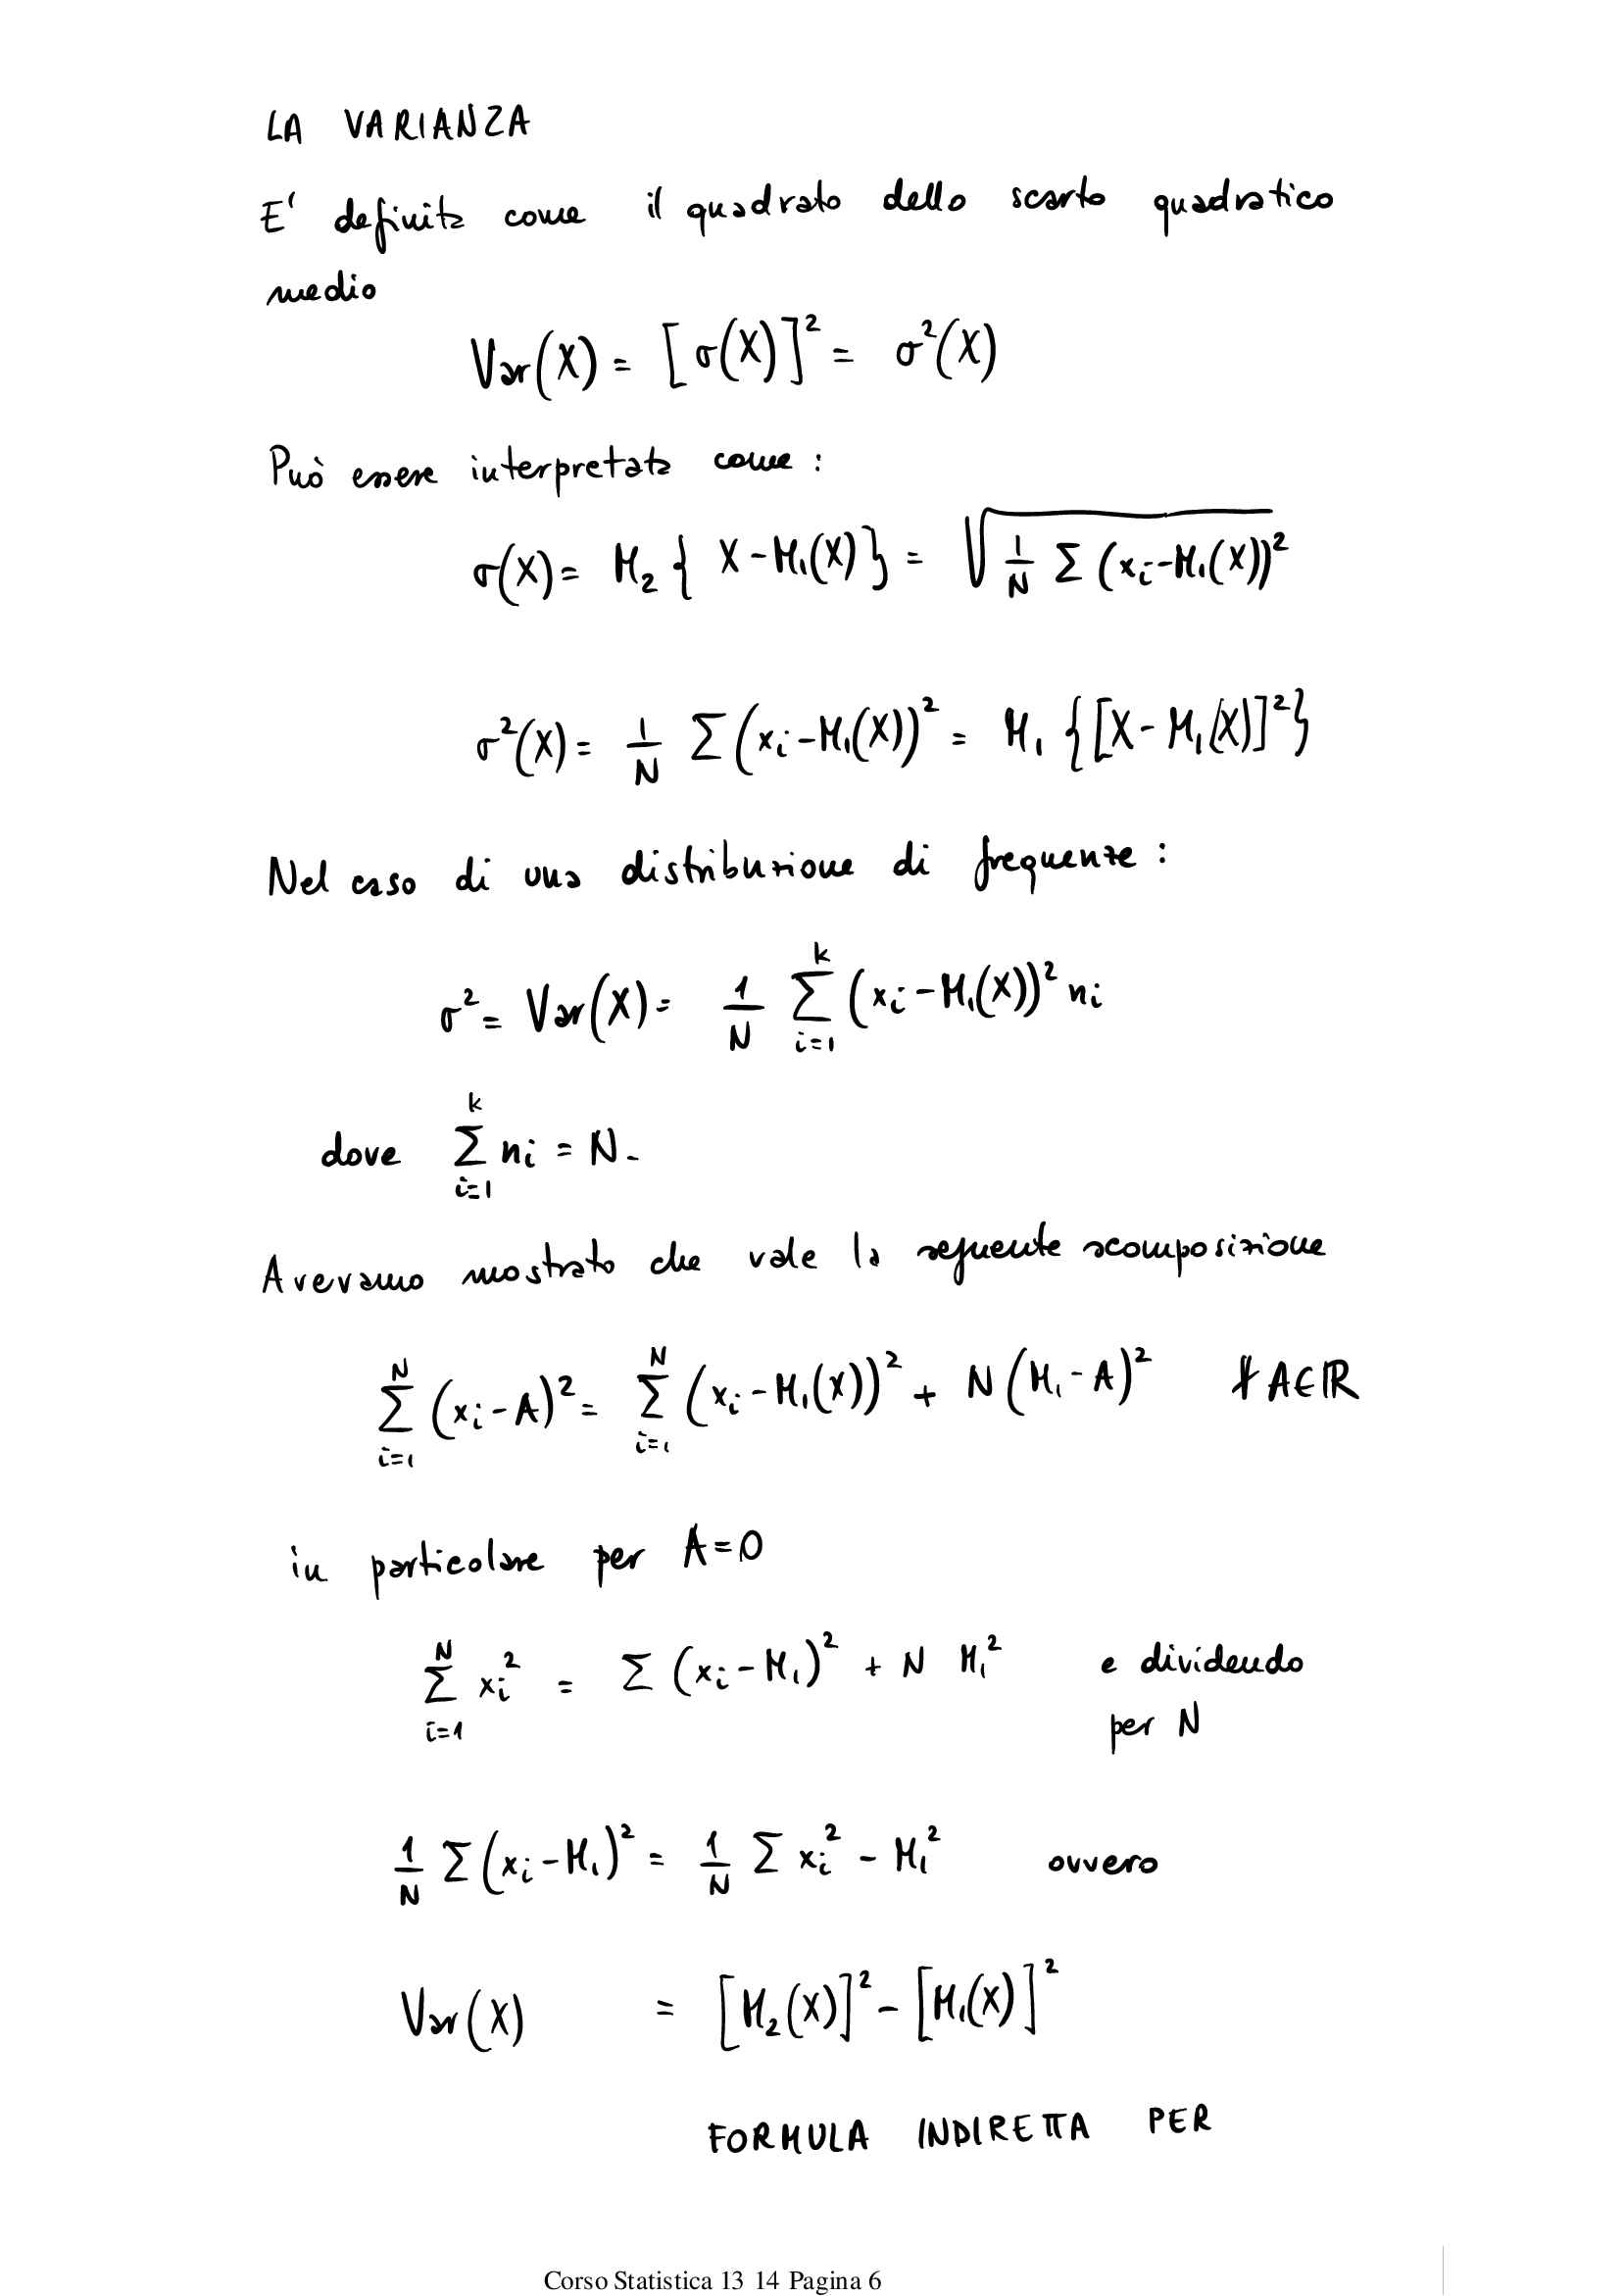 LA VARIANZA
E' definita come il quadrato dello scarto quadratico
medio
Var(X) = [σ(X)]² = σ²(X)
Può essere interpretata come :
σ(X) = M₂ { X - M₁(X) } = √ 1/N Σ (xᵢ - M₁(X))²
σ²(X) = 1/N Σ (xᵢ - M₁(X))² = M₁ {[X - M₁(X)]²}
Nel caso di una distribuzione di frequenze :
σ² = Var(X) = 1/N Σᵢ₌₁ᵏ (xᵢ - M₁(X))² nᵢ
dove Σᵢ₌₁ᵏ nᵢ = N.
Avevamo mostrato che vale la seguente scomposizione
Σᵢ₌₁ᴺ (xᵢ - A)² = Σᵢ₌₁ᴺ (xᵢ - M₁(X))² + N (M₁ - A)² ∀ A ∈ ℝ
in particolare per A = 0
Σᵢ₌₁ᴺ xᵢ² = Σ (xᵢ - M₁)² + N M₁² e dividendo
per N
1/N Σ (xᵢ - M₁)² = 1/N Σ xᵢ² - M₁² ovvero
Var(X) = [M₂(X)]² - [M₁(X)]²
FORMULA INDIRETTA PER
Corso Statistica 13 14 Pagina 6